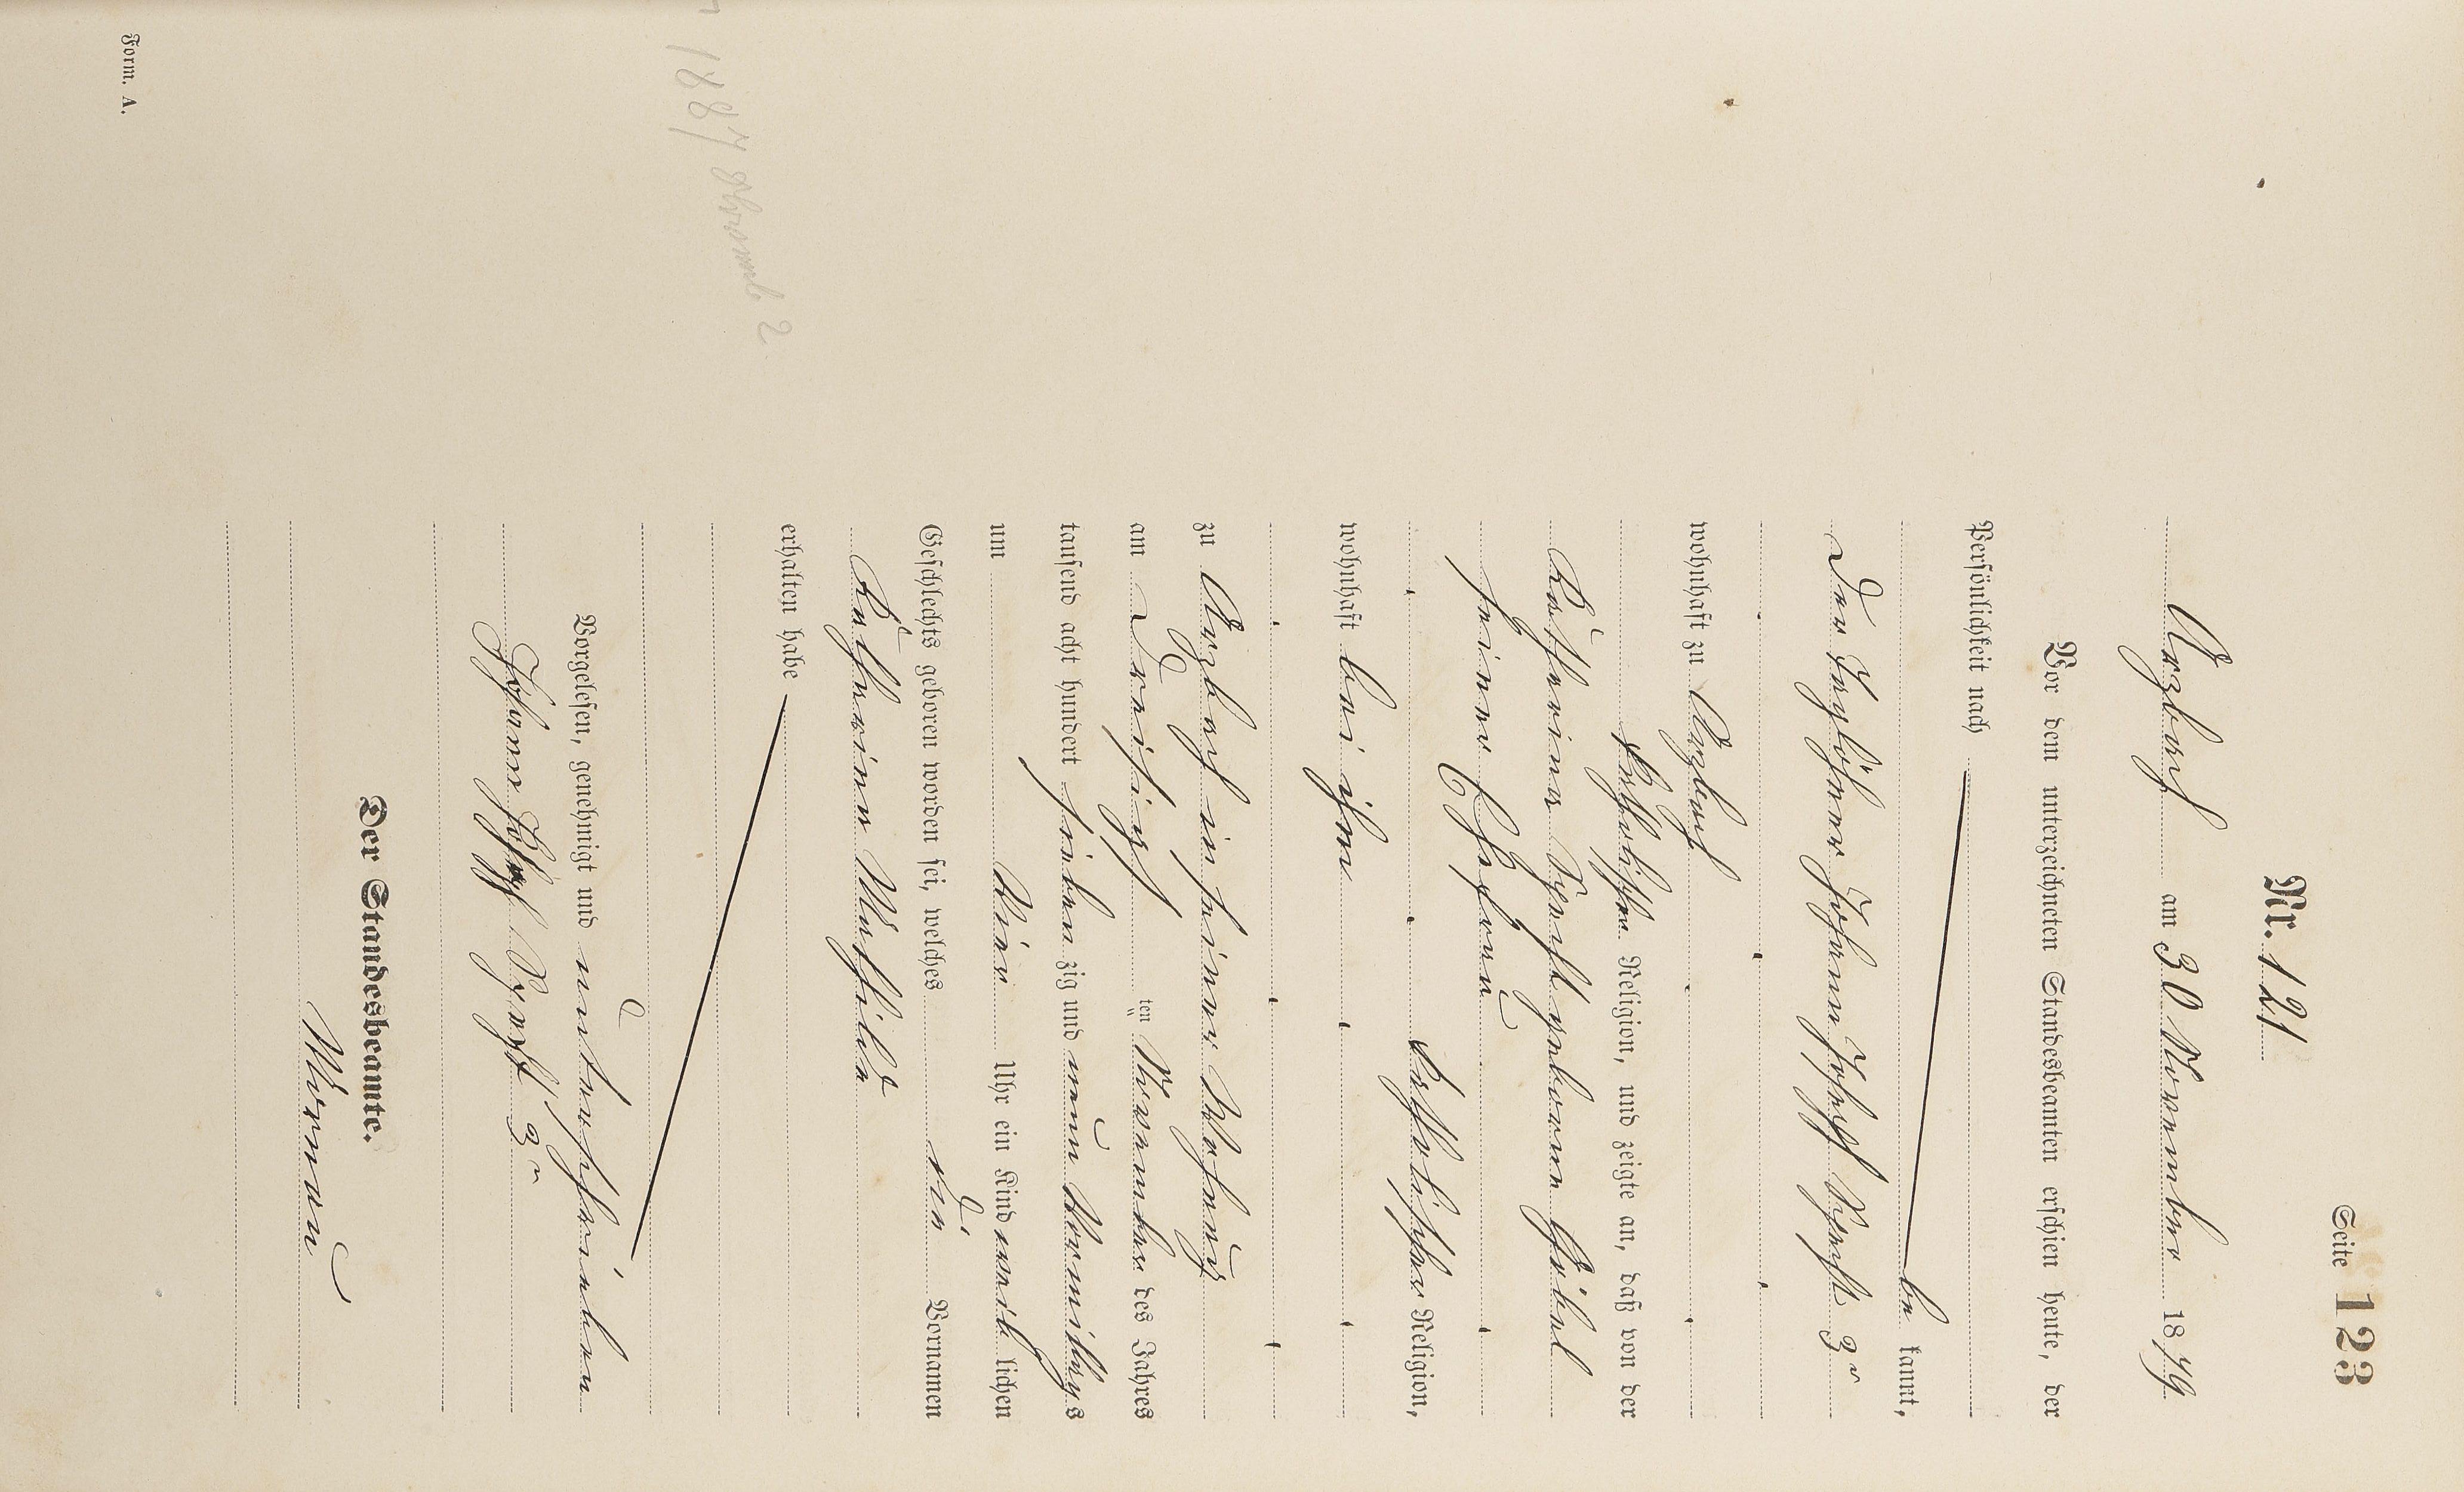 Seite 123
Nr. 121.
Arzbach am 30 November 1879
Vor dem unterzeichneten Standesbeamten erschien heute, der
Persönlichkeit nach
be kannt,
der Johann Joseph 3r
wohnhaft zu Arzbach
katholischer Religion, und zeigte an, daß von der
Katharina geborene Göbel
seiner Ehefrau
katholischer Religion,
wohnhaft bei ihm
zu Arzbach in seiner Wohnung
am Dreißigsten ten November des Jahres
tausend acht hundert sieben zig und neun Vormittags
um Vier Uhr ein Kind weib lichen
Geschlechts geboren worden sei, welches die Vornamen
Katharina Mathilde
erhalten habe
Vorgelesen, genehmigt und unterschrieben
Johann Joseph 3r
Der Standesbeamte.
Form. A.
1887